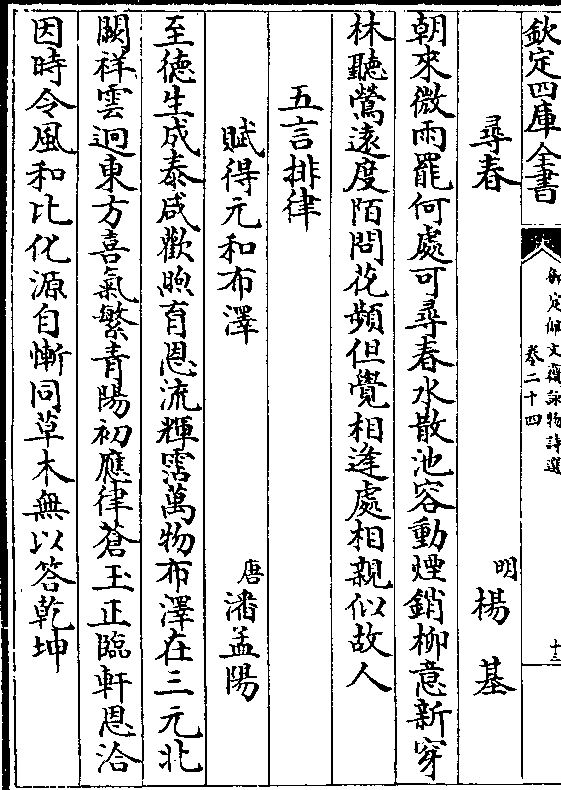 欽定四庫全書
御定佩文齋詠物詩選
卷二十四
十三
尋春
明楊基
朝來微雨罷何處可尋春水散池容動煙銷柳意新穿
林聽鶯遠度陌問花頻但覺相逢處相親似故人
五言排律
賦得元和布澤
唐潘孟陽
至德生成泰咸歡煦育恩流輝霑萬物布澤在三元北
闕祥雲迥東方喜氣繁青陽初應律蒼玉正臨軒恩洽
因時令風和比化源自慚同草木無以答乾坤